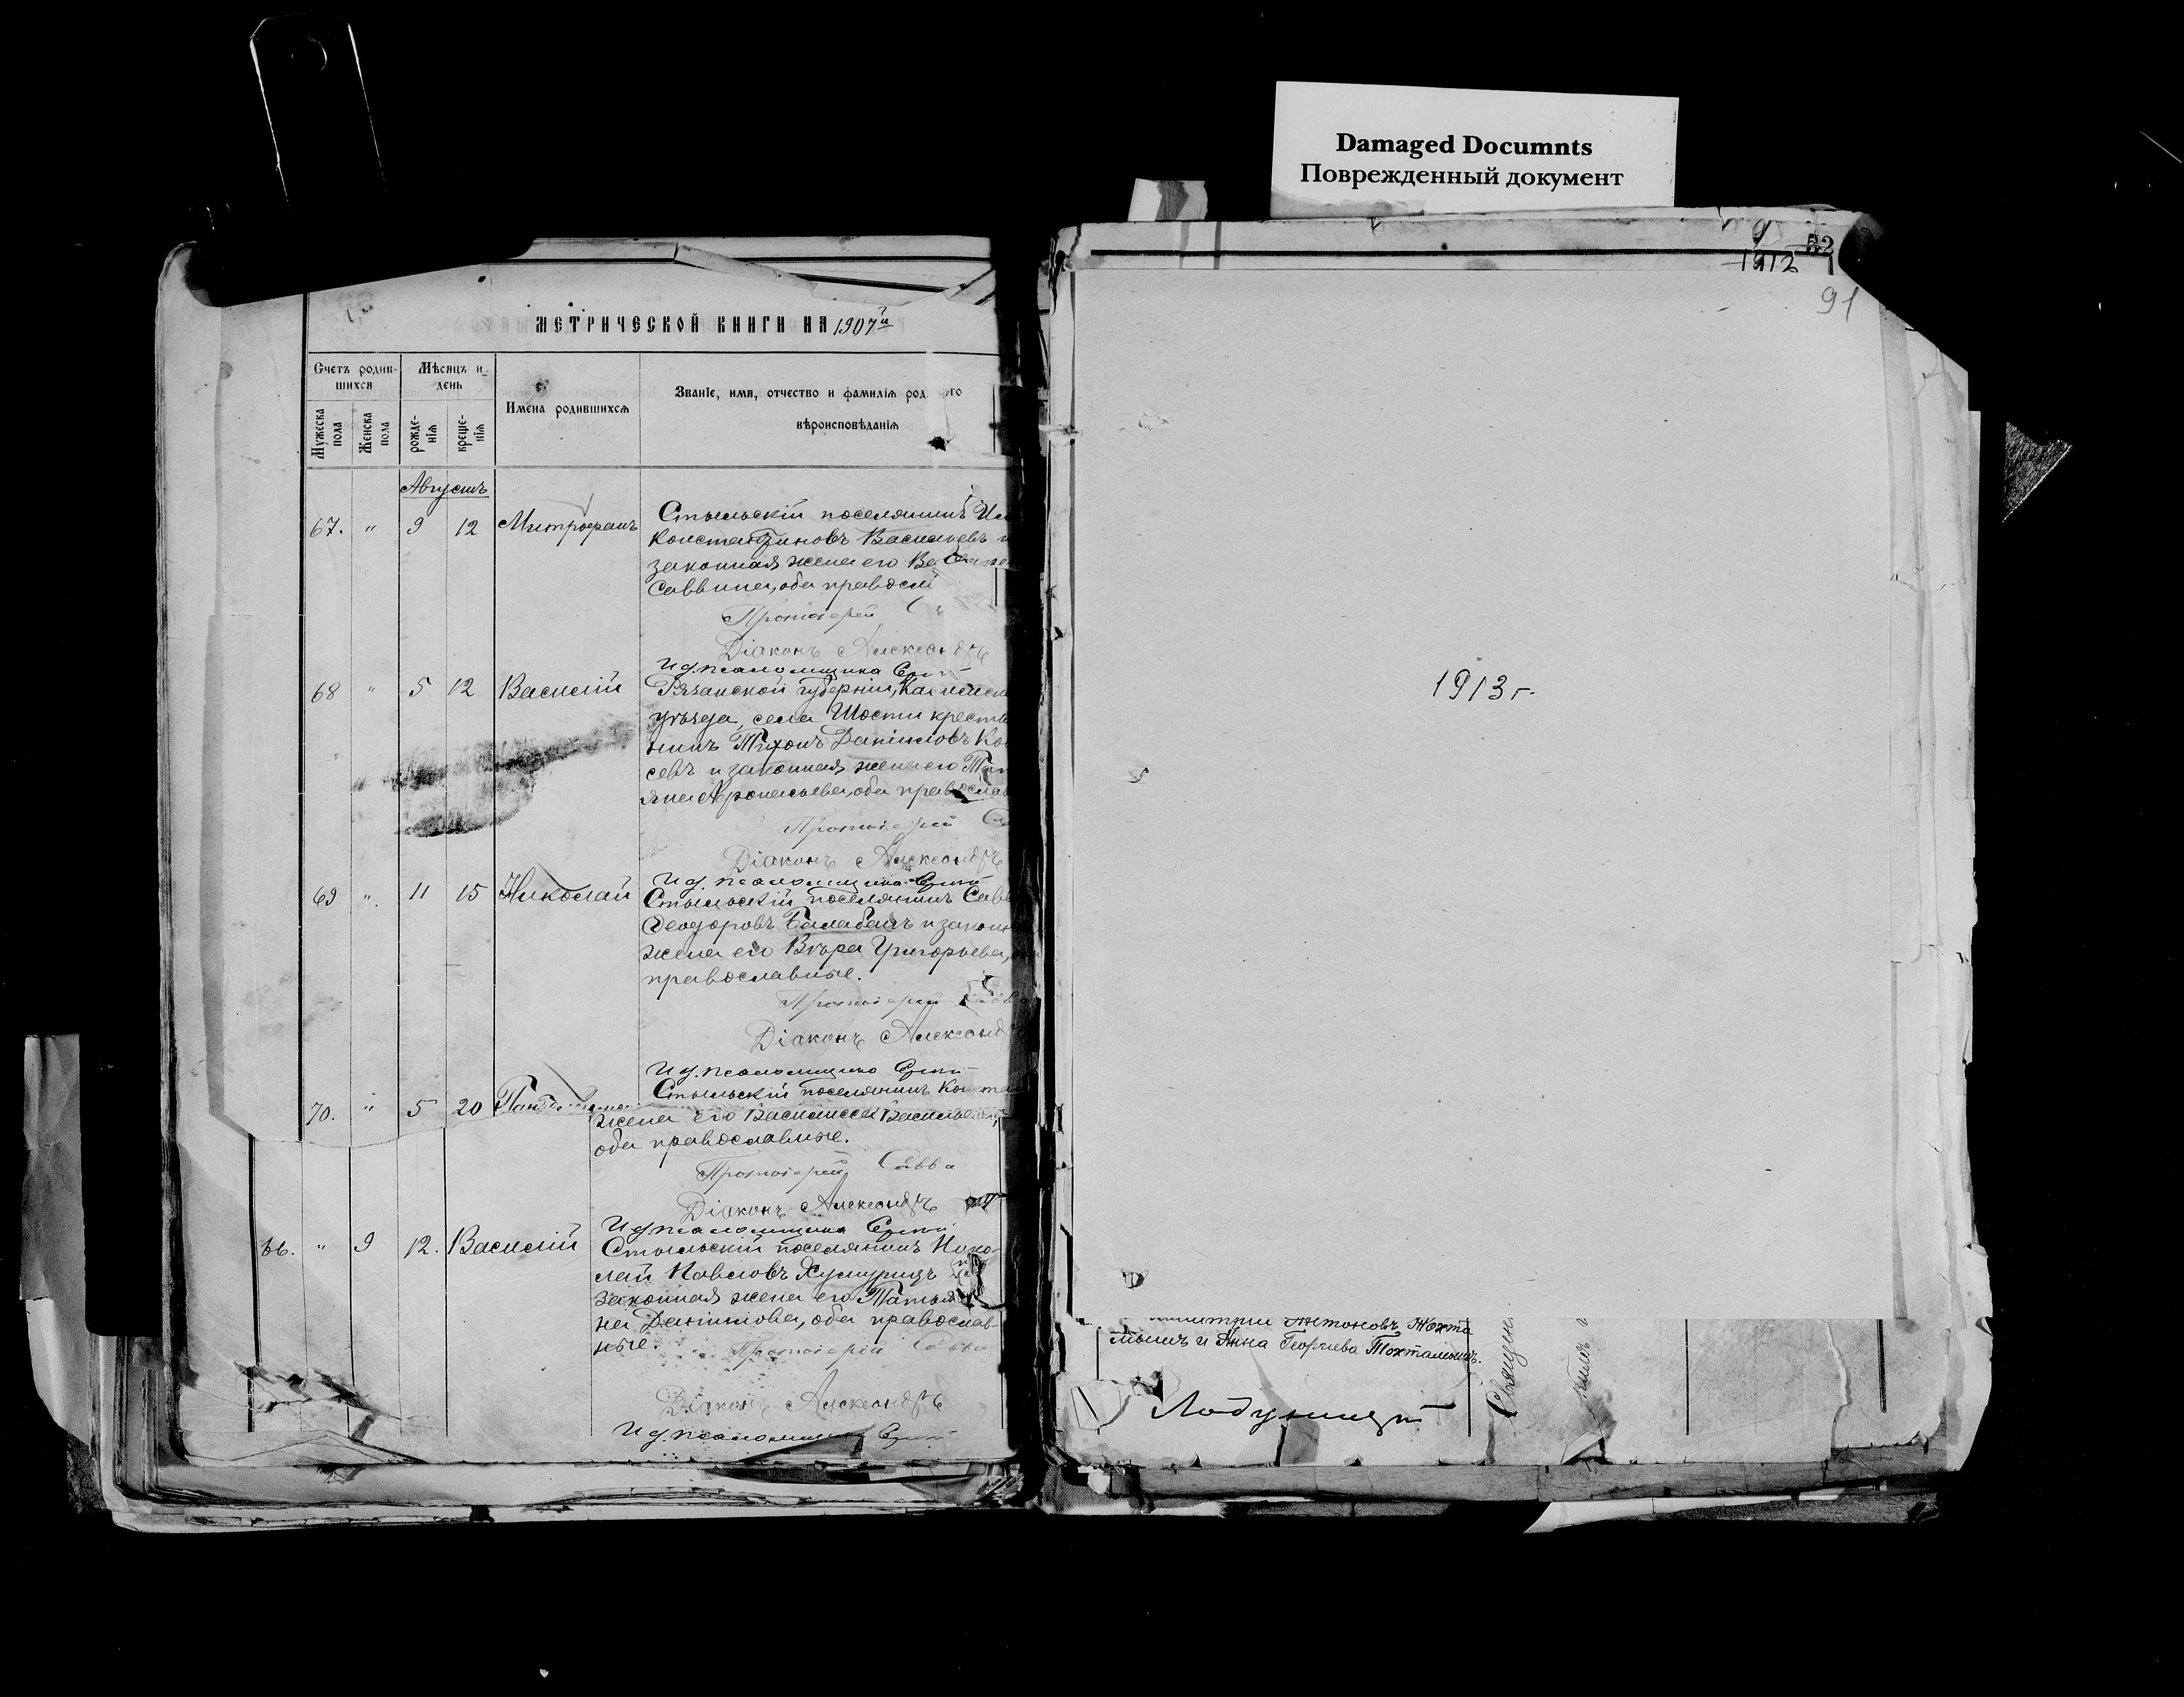 Damaged Documnts
Поврежденный документ
МЕТРИЧЕСКОЙ КНИГИ НА 1907 й
Счетъ родив-
шихся
Мѣсяцъ и
день
Имена родившихся
Званіе, имя, отчество и фамилія род го
вѣроисповѣданія
Мужеска
пола
Женска
пола
рожде-
нія
креще-
нія
Августъ
67. " 9 12 Митрофанъ
Стыльскій поселянинъ
Константиновъ Васильевъ и
законная жена его
Саввина, оба правосл
Протоіерей
Діаконъ Александръ
И д. псаломщика
68 " 5 12 Василій
Рязанской губерніи,
уѣзда, села Шости кресть
нинъ Тихонъ Даніиловъ Ко
севъ и законная жена его Тат
яна Афонасьева, оба православ
Протоіерей
Діаконъ Александръ
И д. псаломщика
69 " 11 15 Николай
Стыльскій поселянинъ Сав
Ѳеодоровъ Балабанъ и законн
жена его Вѣра Григорьева,
православные.
Протоіерей Савва
Діаконъ Александръ
И д. псаломщика
70. " 5 20
Стыльскій поселянинъ
жена его Василисса Васильева,
оба православные.
Протоіерей Савва
Діаконъ Александръ
И д. псаломщика
66. " 9 12. Василій
Стыльскій поселянинъ Нико-
лай Павловъ и
законная жена его Татья
на Даніилова, оба православ-
ные.
Протоіерей Савва
Діаконъ Александръ
И д. псаломщика
1912
52
91
1913 г.
Антоновъ Тохта
мышъ и Анна Георгіева Тохтамышъ.
Священ